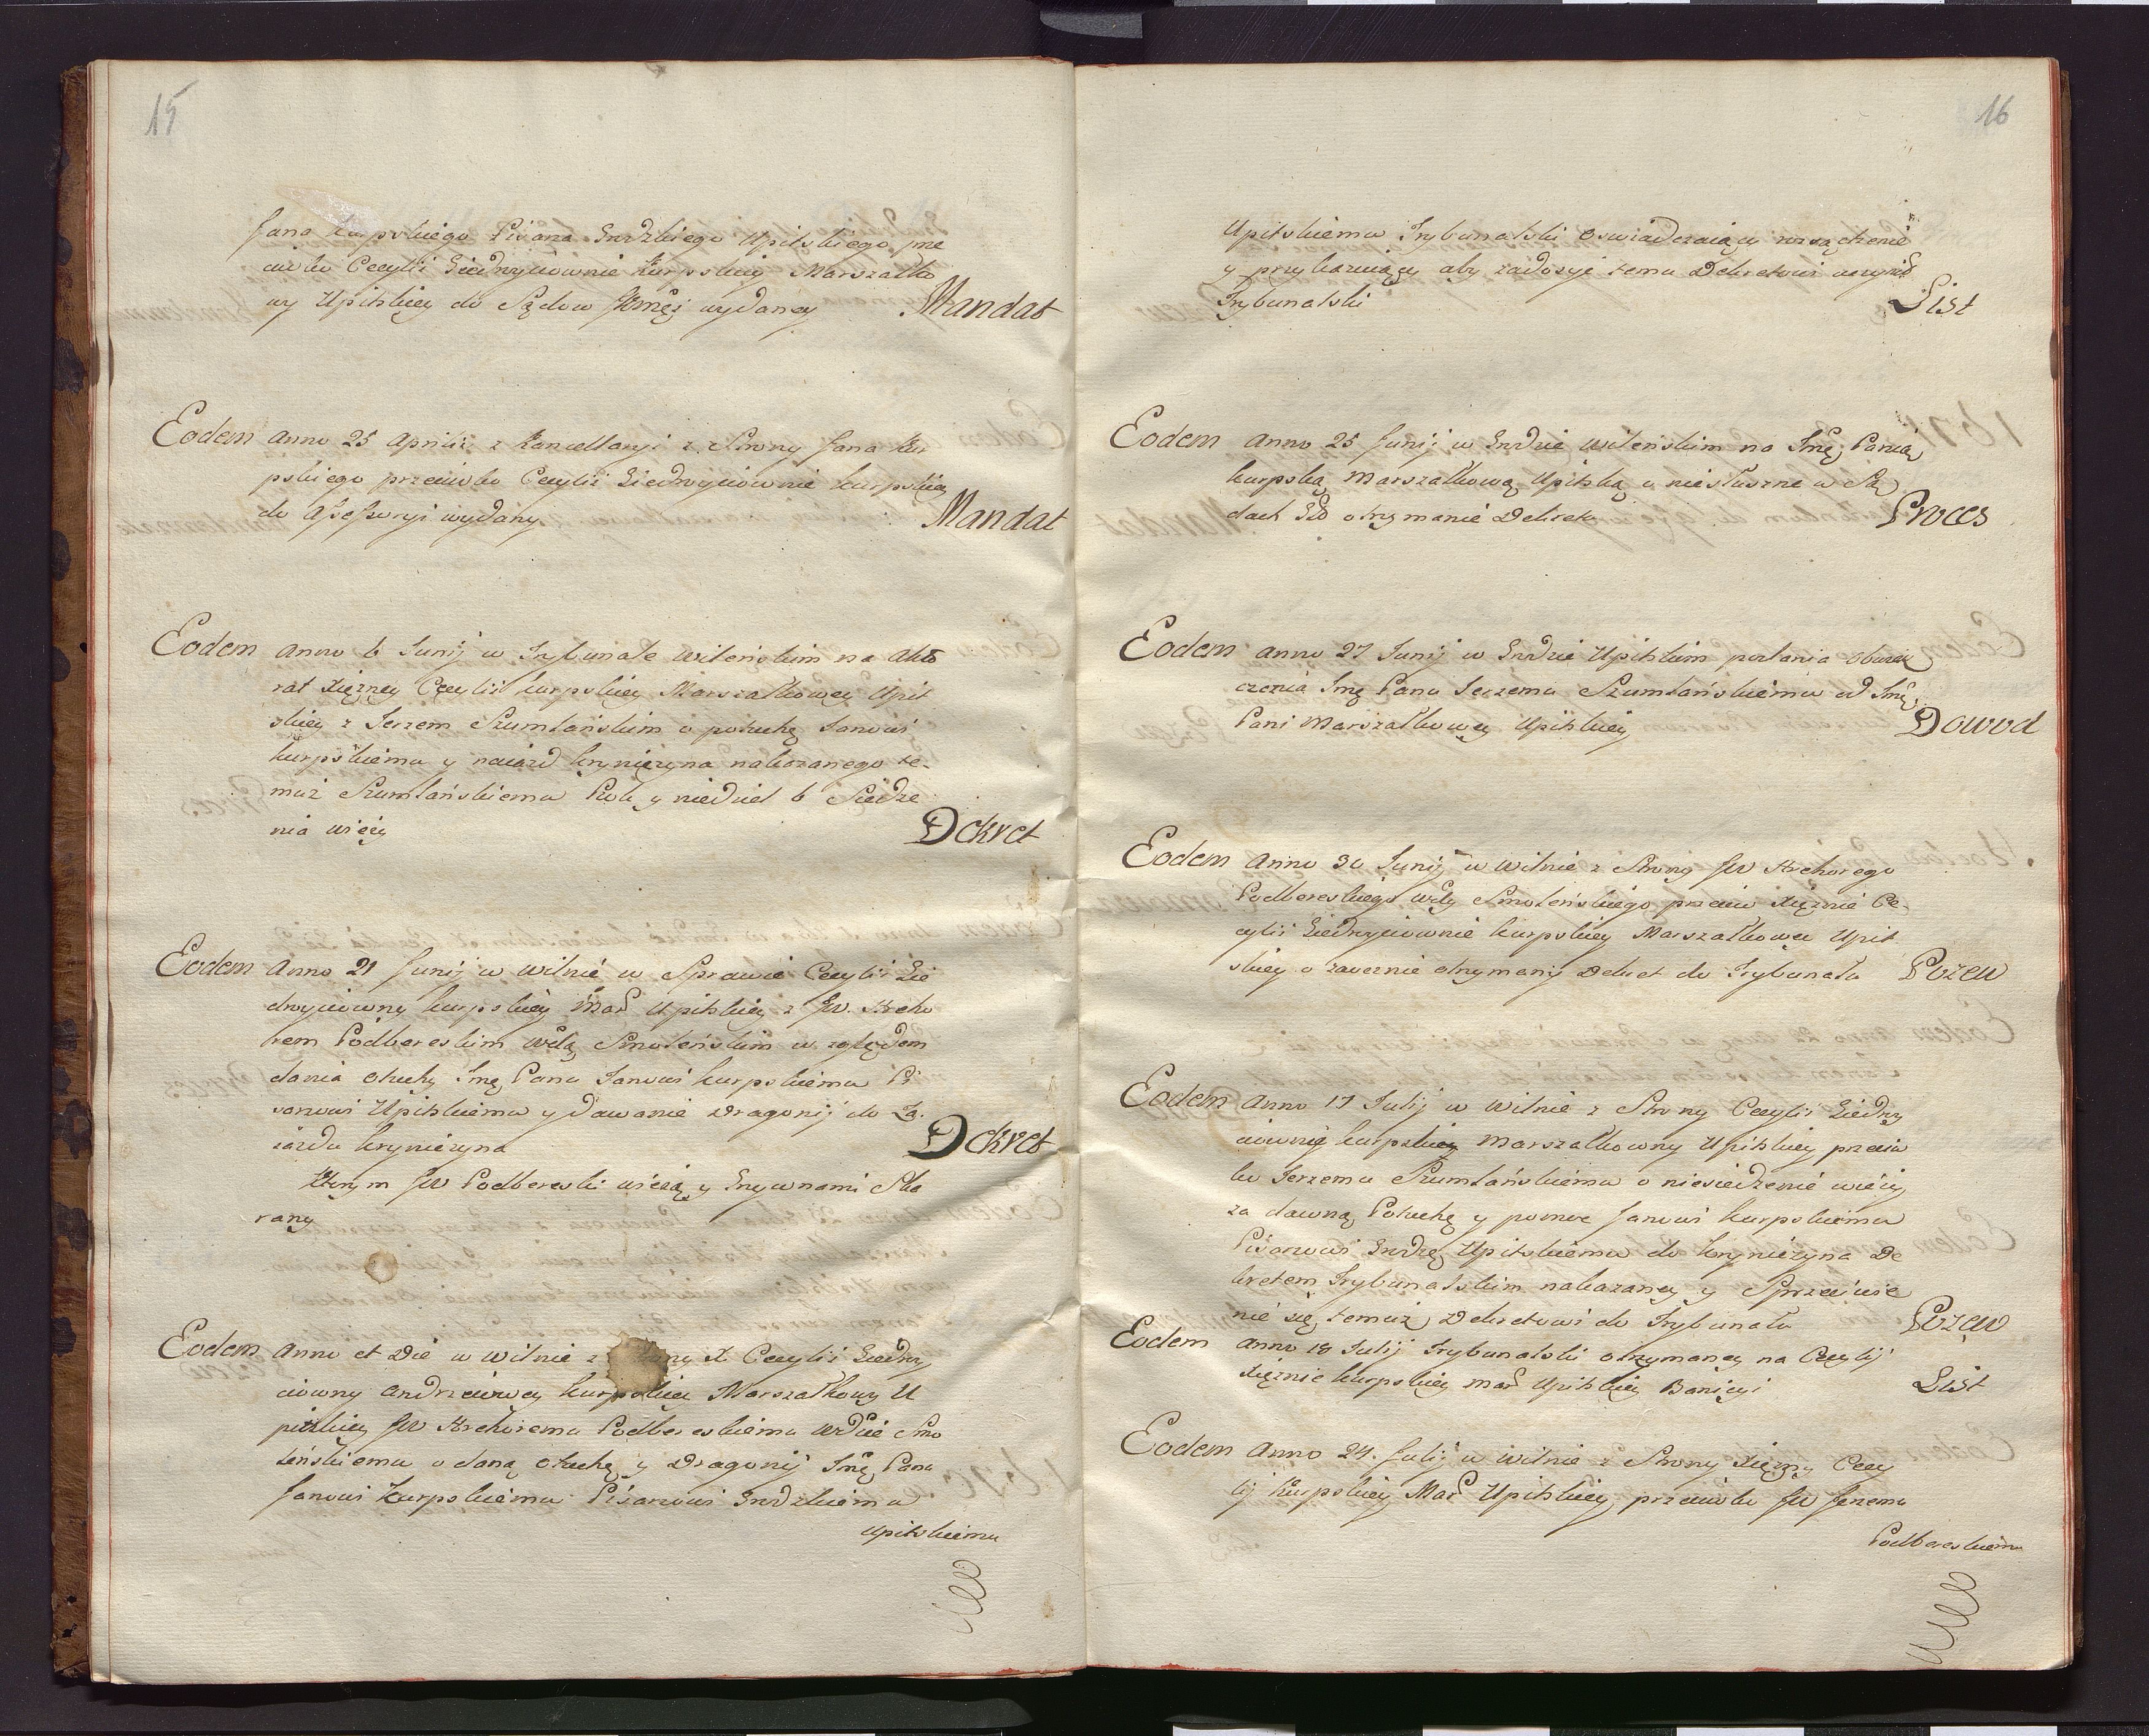 15
Jana Kurpskiego Pisarza Grodzkiego Upitskiego prze
ciwko Cecylii Giedroyciownie Kurpskiey Marszałko
wy Upitskiey do Sądow wydaney Mandat
Eodem Anno 25 Aprilis z Kancellaryi z Strony Jana Kur
pskiego przeciwko Cecylii Giedroyciownie Kurpskiey
do Assessoryi wydany Mandat
Eodem Anno 6 Junij w Trybunale Wileńskim na Akto
rat Xiężney Cecylii Kurpskiey Marszałkowey Upit
skiey z Jerzem Szumlańskim o potuchę Janowi
Kurpskiemu y naiazd Kryniczyna nakazanego te-
muż Szumlańskiemu Rok y niedziel 6 Siedze
nia wieży Dekret
Eodem Anno 21 Junij w Wilnie w Sprawie Cecylii Gie
droyciowny Kurpskiey Mar Upitskiey z JW. Krechо
rem Podbereskim Wdą Smoleńskim w zględem
dania otuchy Jmę Panu Janowi Kurpskiemu Pi
sarzowi Upitskiemu y dawanie Dragonij do Za-
iazdu Kryniczyna Dekret
Ktorym JW Podbereski wieżą y Grzywnami Ska
rany
Eodem Anno et Die w Wilnie z X Cecylii Giedroy
ciowny Andrzeiowey Kurpskiey Marszałkowy U
pitskiey JW Krehoremu Podbereskiemu Wdzie Smo
leńskiemu o daną otuchę y Dragonij Jmę Panu
Janowi Kurpskiemu Pisarzowi Grodzkiemu
Upitskiemu
16
Upitskiemu Trybunalski oswiadczaiący
y przykazuiący aby zadosyć temu Dekretowi uczynił
Trybunalski List
Eodem Anno 25 Junij w Grodzie Wileńskim na Jmę Panią
Kurpską Marszałkową Upitską o niesłuszne w Są
dach otrzymanie Dekretu Proces
Eodem Anno 27 Junij w Grodzie Upitskim podania obwie
czenia Jmę Panu Jerzemu Szumlańskiemu od Jmę
Pani Marszałkowey Upitskiey Dowod
Eodem Anno 30 Junij w Wilnie z Strony JW Krehorego
Podbereskiego Wdy Smoleńskiego przeciw Xiężnie Ce-
cylii Giedroyciownie Kurpskiey Marszałkowe Upit
skiey o zaocznie otrzymany Dekret do Trybunału Pozew
Eodem Anno 17 Julij w Wilnie z Strony Cecylii Giedroy
ciownie Kurpskiey Marszałkowny Upitskiey przeciw
ko Jerzemu Szumlańskiemu o niesiedzenie wieży
za dawną Potuchę y pomoc Janowi Kurpskiemu
Pisarzowi Grodz Upitskiemu do Kryniczyna De
kretem Trybunalskim nakazaney y Sprzeciwie
nie się temuż Dekretowi do Trybunału Pozew
Eodem Anno 18 Julij Trybunalski otrzymaney na Cecylij
Xiężnie Kurpskiey Mar Upitskiey Banicyi List
Eodem Anno 24. Julij w Wilnie z Strony Xiężny Cecy
lij Kurpskiey Mar Upitskiey przeciwko JW Jerzemu
Podbereskiemu